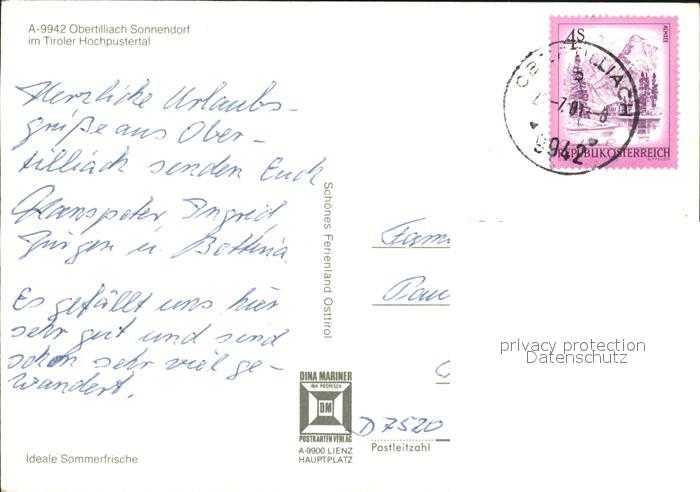 A-9942 Obertilliach Sonnendorf
im Tiroler Hochpustertal
Herzliche Urlaubs-
grüße aus Ober-
tilliach senden Euch
Hanspeter, Ingrid,
Jürgen u. Bettina.
Es gefällt uns hier
sehr gut und sind
schon sehr viel ge-
wandert.
Ideale Sommerfrische
Schönes Ferienland Osttirol
DINA MARINER
INH. POSPESCH
DM
POSTKARTENVERLAG
A-9900 LIENZ
HAUPTPLATZ
4S
ALMSEE
REPUBLIK ÖSTERREICH
OBERTILLIACH
9942
Fam
D 7520
Postleitzahl
privacy protection
Datenschutz